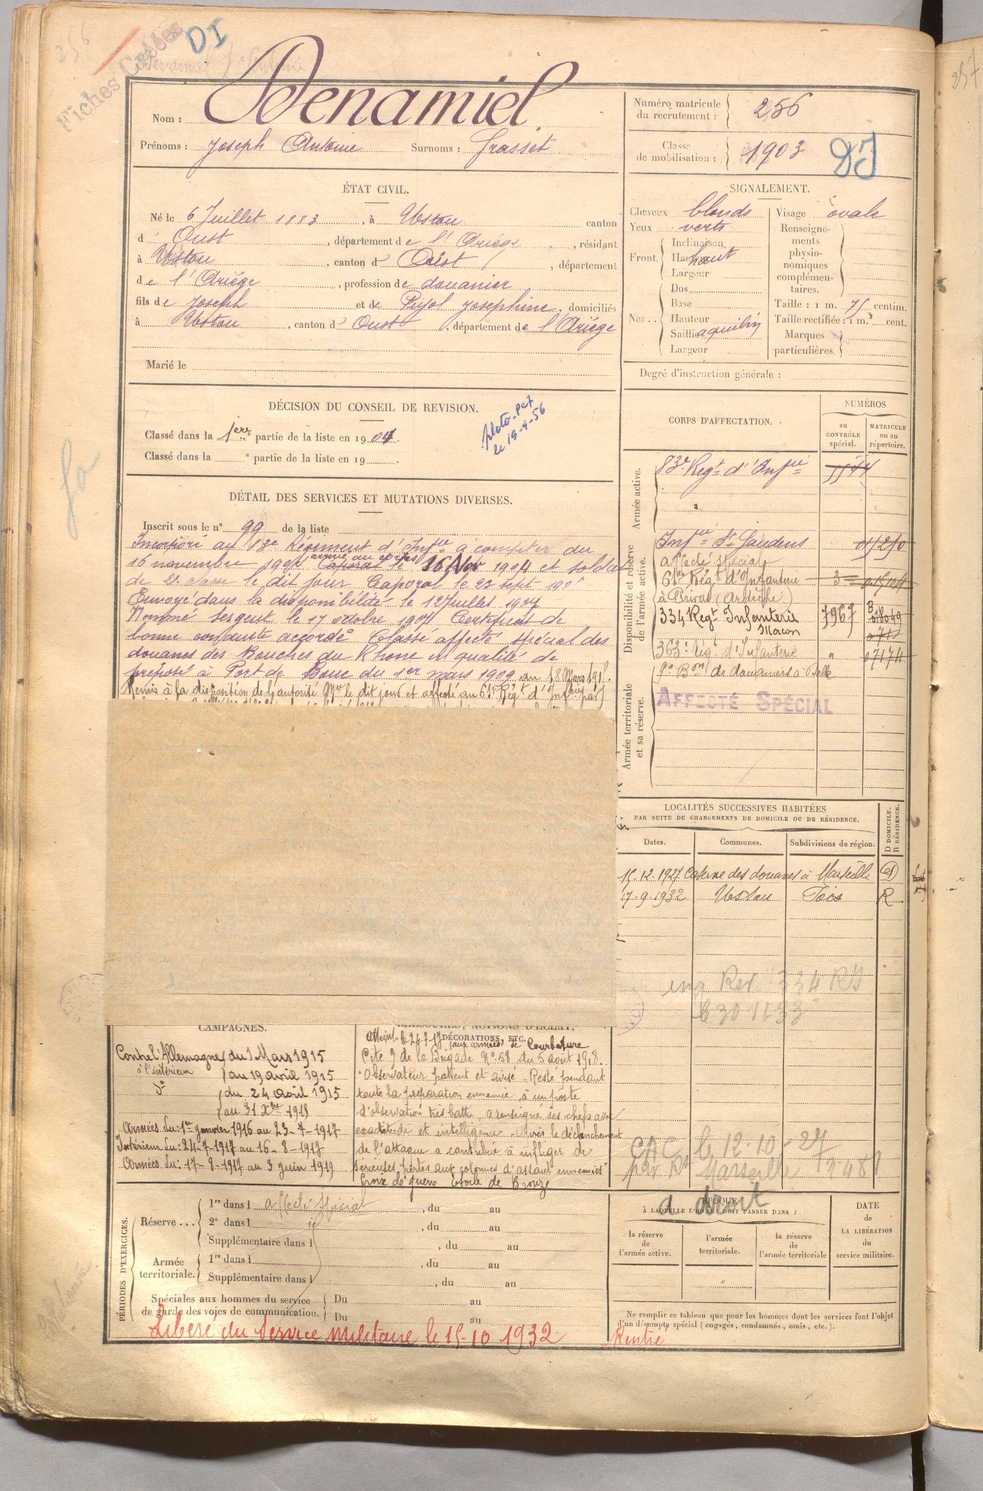 256
Fiches Créées
DI
Nom : Benamiel
Prénoms : Joseph Antoine Surnoms : Grasset
Numéro matricule du recrutement : 256
Classe de mobilisation : 1903
ÉTAT CIVIL.
Né le 6 Juillet 1883, à Ustou canton
d' Oust, département de l'Ariège, résidant
à Ustou, canton d' Oust, département
de l'Ariège, profession de douanier
fils de Joseph et de Pujol Josephine, domiciliés
à Ustou, canton d' Oust, département de l'Ariège
Marié le
SIGNALEMENT.
Cheveux blonds
Yeux verts
Front. Inclinaison,
Hauteur haut
Largeur
Nez... Dos
Base
Hauteur
Saillie aquilin
Largeur
Visage ovale
Renseignements physionomiques complémentaires.
Taille : 1 m. 75 centim.
Taille rectifiée : 1 m. cent.
Marques particulières.
Degré d'instruction générale :
DÉCISION DU CONSEIL DE REVISION.
Classé dans la 1ère partie de la liste en 1904.
Classé dans la e partie de la liste en 19
le 19-4-56
DÉTAIL DES SERVICES ET MUTATIONS DIVERSES.
Inscrit sous le n° 99 de la liste
Incorporé au 83e Régiment d'Infie à compter du
16 novembre 1904 arrivé au corps le 16 Nov 1904 et soldat
de 2e classe le dit jour Caporal le 22 sept 190
Envoyé dans la disponibilité le 12 Juillet 1907
Nommé sergent le 17 octobre 1907 Certificat de
bonne conduite accordé Classé affecté spécial des
douanes des Bouches du Rhône en qualité de
préposé à Port de Bouc du 1er mars 1909 au
Remis à la disposition de l'autorité Mre le dit jour et affecté au 61e Régt d'Infie
CORPS D'AFFECTATION.
NUMÉROS
au CONTRÔLE spécial.
MATRICULE ou au répertoire.
Armée active.
83e Regt d'Infie
Disponibilité et réserve de l'armée active.
Infie St Gaudens
affecté spécial
61e Régt d'Infanterie
à Privas (Ardèche)
334 Regt Infanterie 7967
Macon
363e Rég. d'Infanterie " 07174
Bon de douaniers à
Armée territoriale et sa réserve.
AFFECTÉ SPÉCIAL
LOCALITÉS SUCCESSIVES HABITÉES
PAR SUITE DE CHANGEMENTS DE DOMICILE OU DE RÉSIDENCE.
Dates. Communes. Subdivisions de région. D DOMICILE. R RÉSIDENCE.
15.12.1927 Caserne des douanes à Marseille
7-9-1932 Ustou Foix R
334 RI
CAMPAGNES.
Contre l'Allemagne du 1 Mars 1915
à l'intérieur au 19 avril 1915
du 24 août 1915
au 31 Xbre 1915
Armées du : 1er janvier 1916 au 23-7-1917
Intérieur du : 24-7-1917 au 16-8-1917
Armées du : 17-8-1917 au 3 juin 1919
BLESSURES, ACTIONS D'ÉCLAT, DÉCORATIONS, ETC.
aux armées de Courbature
Cité O de la Brigade N° 58 du 5 août 1918.
"Observateur patient et avisé. Resté pendant
toute la préparation ennemie à un poste
d'observation très battu, a renseigné ses chefs avec
exactitude et intelligence. Après le déclanchement
de l'attaque a contribué à infliger de
sérieuses pertes aux colonnes d'assaut ennemies"
Croix de guerre Etoile de Bronze
le 12-10-27
Marseille
PÉRIODES D'EXERCICES.
Réserve... 1re dans l affecté spécial, du au
2e dans l, du au
Supplémentaire dans l, du au
Armée territoriale. 1re dans l, du au
Supplémentaire dans l, du au
Spéciales aux hommes du service de garde des voies de communication. Du au
Du au
Libéré du service militaire le 15-10 1932
ÉPOQUE
À LAQUELLE L'HOMME DOIT PASSER DANS :
la réserve de l'armée active.
l'armée territoriale.
la réserve de l'armée territoriale
DATE de LA LIBÉRATION du service militaire.
Ne remplir ce tableau que pour les hommes dont les services font l'objet
d'un décompte spécial (engagés, condamnés, omis, etc.).
257